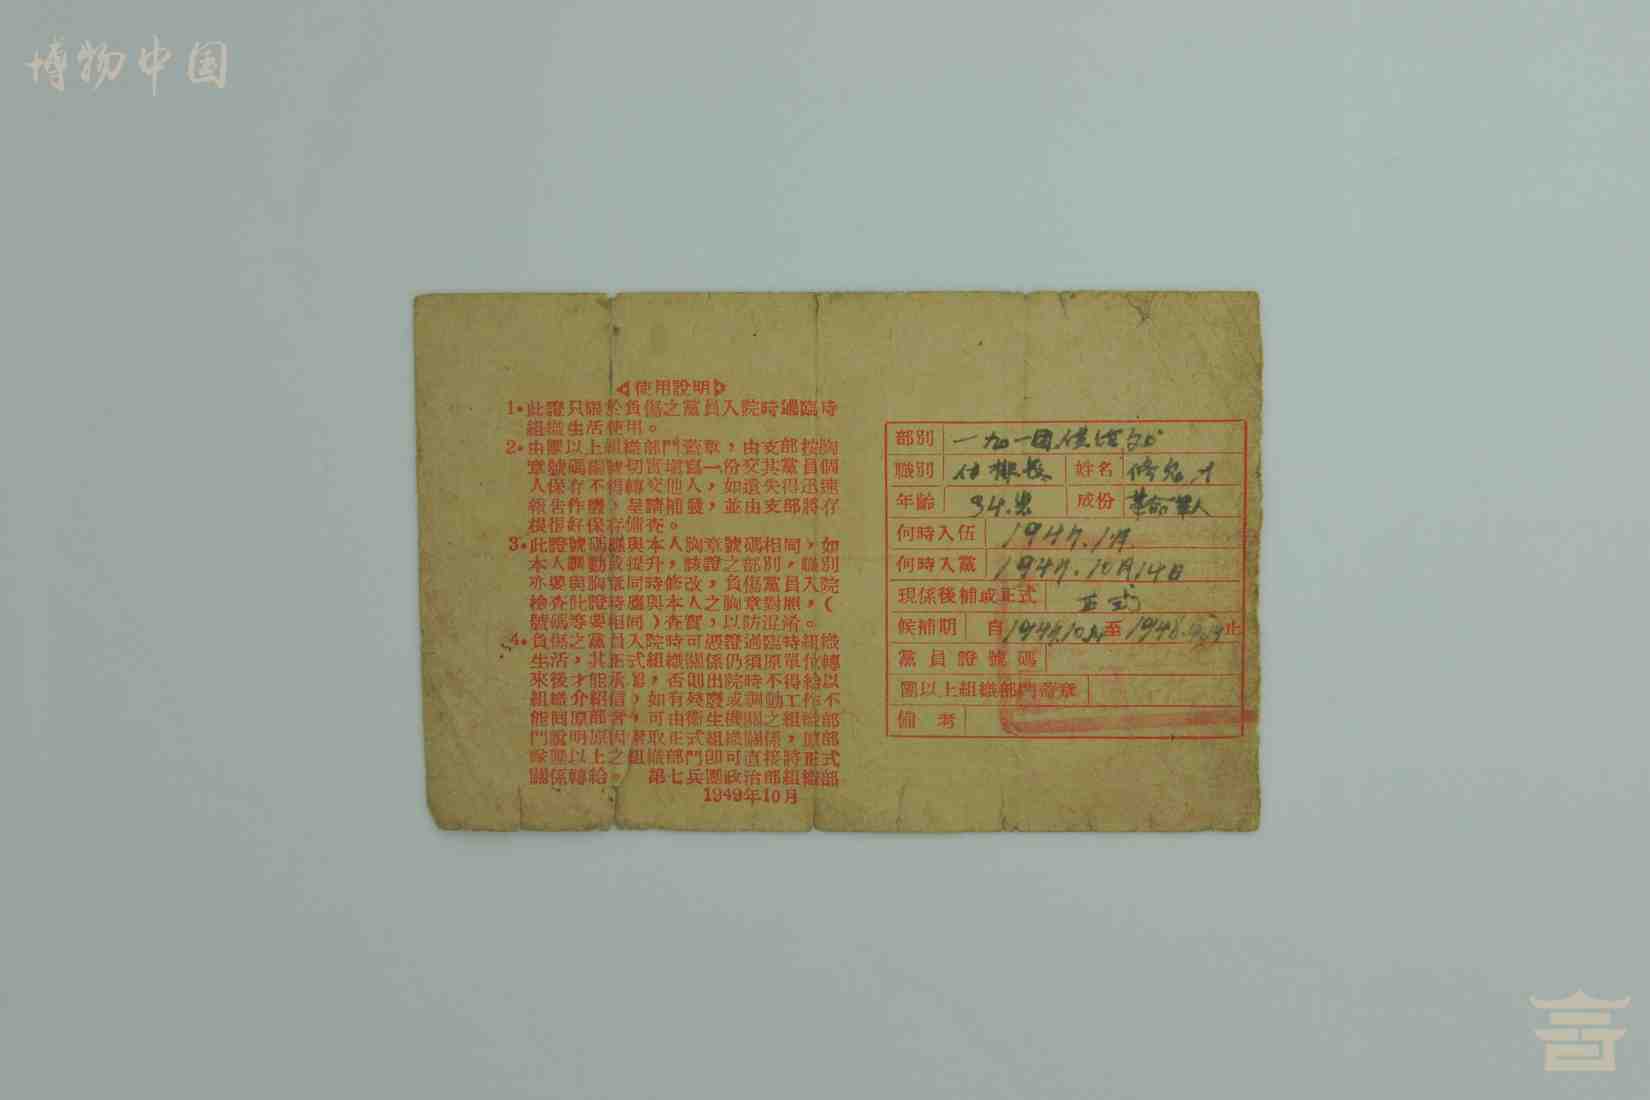 博物中国
◁使用說明▷
1.此證只限於負傷之黨員入院時過臨時
組織生活使用。
2.由團以上組織部門蓋章,由支部按胸
章號碼編號切實填寫一份交其黨員個
人保存不得轉交他人,如遺失得迅速
報告作廢,呈請補發,並由支部將存
根很好保存備查。
3.此證號碼應與本人胸章號碼相同,如
本人調動或提升,該證之部別,職別
亦要與胸章同時修改,負傷黨員入院
檢查此證時應與本人之胸章對照,(
號碼等要相同)查實,以防混淆。
4.負傷之黨員入院時可憑證過臨時組織
生活,其正式組織關係仍須原單位轉
來後才能承認,否則出院時不得給以
組織介紹信,如有殘廢或調動工作不
能回原部者,可由衛生機關之組織部
門說明原因索取正式組織關係,原部
隊團以上之組織部門即可直接將正式
關係轉給。 第七兵團政治部組織部
1949年10月
部別 一九一团
職別 排長 姓名
年齡 34.岁 成份 革命軍人
何時入伍 1947.1月
何時入黨 1947.10月14日
現係後補或正式 正式
候補期 自1947.10月至1948. 止
黨員證號碼
團以上組織部門蓋章
備考